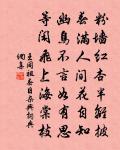 粉墙红杏半离披
卷满人间花自知
幽鸟不言如有思
等闲飞上海棠枝
王同祖春日杂兴词典
网集